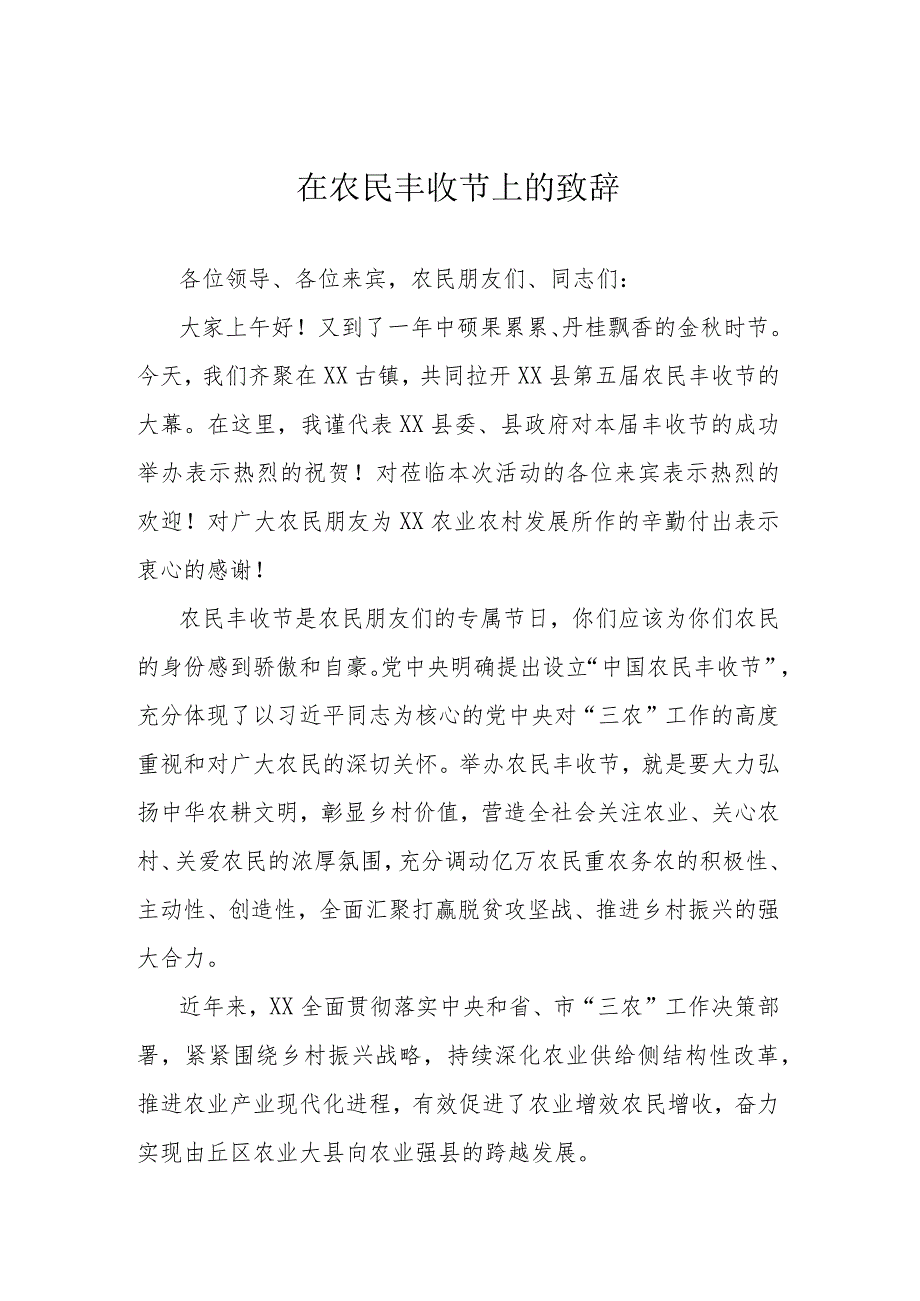 在农民丰收节上的致辞
各位领导、各位来宾，农民朋友们、同志们：
大家上午好！又到了一年中硕果累累、丹桂飘香的金秋时节。
今天，我们齐聚在 XX 古镇，共同拉开 XX 县第五届农民丰收节的
大幕。在这里，我谨代表 XX 县委、县政府对本届丰收节的成功
举办表示热烈的祝贺！对莅临本次活动的各位来宾表示热烈的
欢迎！对广大农民朋友为 XX 农业农村发展所作的辛勤付出表示
衷心的感谢！
农民丰收节是农民朋友们的专属节日，你们应该为你们农民
的身份感到骄傲和自豪。党中央明确提出设立“中国农民丰收节”，
充分体现了以习近平同志为核心的党中央对“三农”工作的高度
重视和对广大农民的深切关怀。举办农民丰收节，就是要大力弘
扬中华农耕文明，彰显乡村价值，营造全社会关注农业、关心农
村、关爱农民的浓厚氛围，充分调动亿万农民重农务农的积极性、
主动性、创造性，全面汇聚打赢脱贫攻坚战、推进乡村振兴的强
大合力。
近年来，XX 全面贯彻落实中央和省、市“三农”工作决策部
署，紧紧围绕乡村振兴战略，持续深化农业供给侧结构性改革，
推进农业产业现代化进程，有效促进了农业增效农民增收，奋力
实现由丘区农业大县向农业强县的跨越发展。